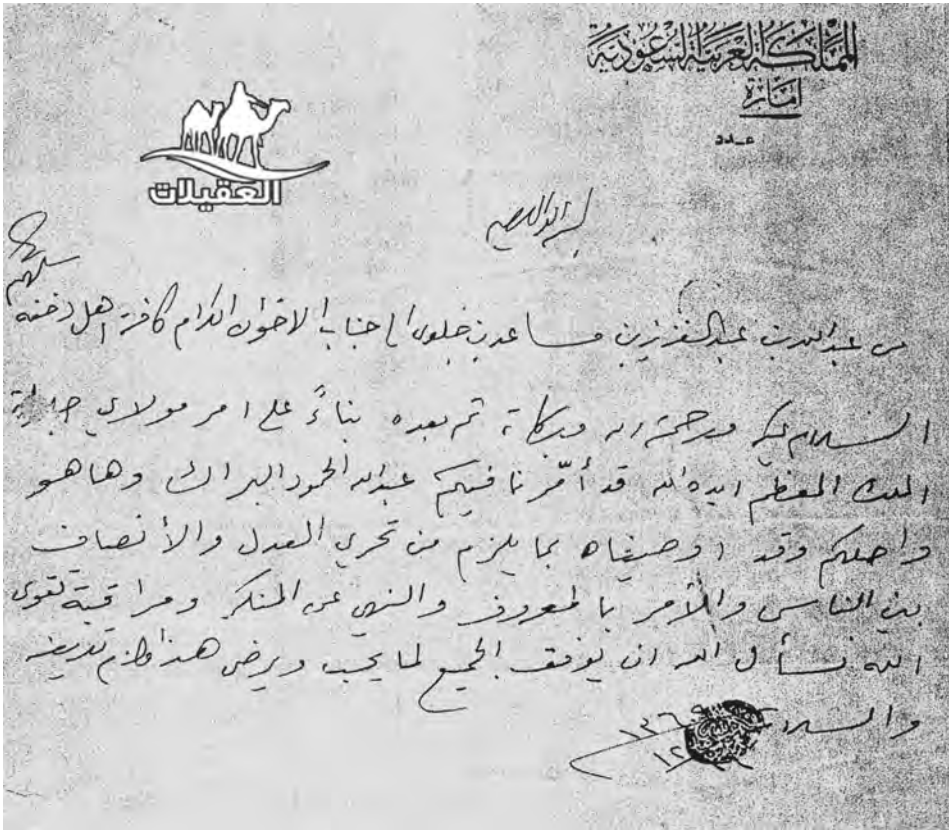 المملكة العربية السعودية
إمارة
عـدد
العقيلات
بسم الله الرحمن الرحيم
سلمهم
من عبدالله بن عبدالعزيز بن مساعد بن جلوي الى جناب الاخوان الكرام كافة اهل دخنه
السلام عليكم ورحمة الله وبركاته ثم بعده بناءً على امر مولاي جلالة
الملك المعظم ايده الله قد أمّرنا فيكم عبدالله الحمود البراك وها هو
واصلكم وقد اوصيناه بما يلزم من تحري العدل والأنصاف
بين الناس والأمر بالمعروف والنهي عن المنكر ومراقبة تقوى
الله نسأل الله ان يوفق الجميع لما يحب ويرضى هذا ما لزم تعريفه
والسلام
١٣٦٩